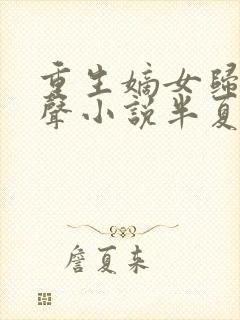 重生嫡女歸
聲小說半夏
詹夏來